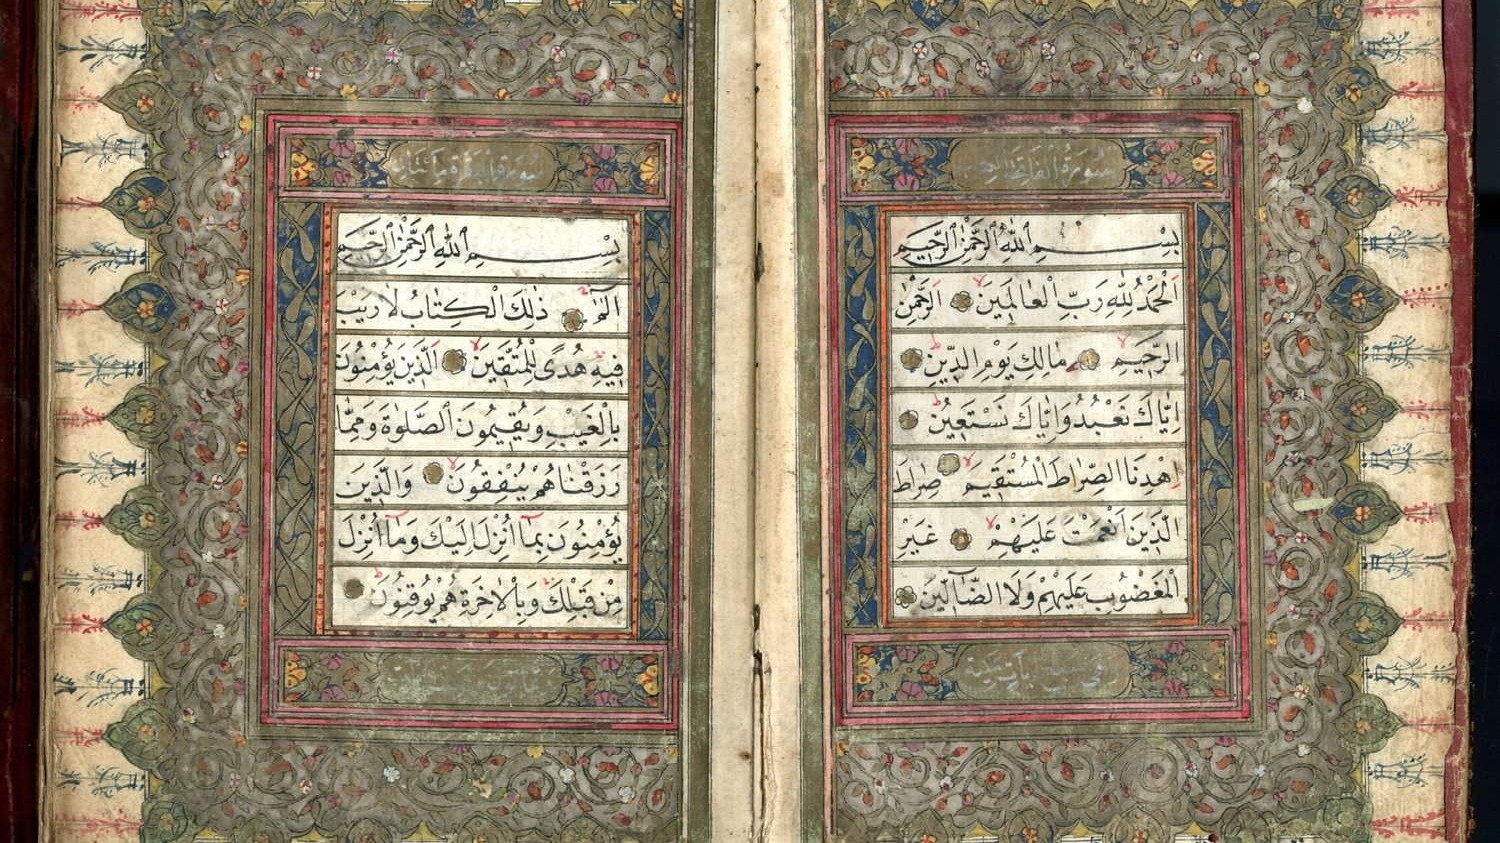 سُورَةُ الفَاتِحَة
بِسْمِ اللهِ الرَّحْمٰنِ الرَّحِيمِ
اَلْحَمْدُ لِلّٰهِ رَبِّ الْعَالَمِينَ الرَّحْمٰنِ
الرَّحِيمِ مَالِكِ يَوْمِ الدِّينِ
اِيَّاكَ نَعْبُدُ وَاِيَّاكَ نَسْتَعِينُ
اِهْدِنَا الصِّرَاطَ الْمُسْتَقِيمَ صِرَاطَ
الَّذِينَ اَنْعَمْتَ عَلَيْهِمْ غَيْرِ
الْمَغْضُوبِ عَلَيْهِمْ وَلَا الضَّالِّينَ
سورة البقرة مائتان
بِسْمِ اللهِ الرَّحْمٰنِ الرَّحِيمِ
الٓمٓ ذٰلِكَ الْكِتَابُ لَا رَيْبَ
فِيهِ هُدًى لِلْمُتَّقِينَ الَّذِينَ يُؤْمِنُونَ
بِالْغَيْبِ وَيُقِيمُونَ الصَّلٰوةَ وَمِمَّا
رَزَقْنَاهُمْ يُنْفِقُونَ وَالَّذِينَ
يُؤْمِنُونَ بِمَٓا اُنْزِلَ اِلَيْكَ وَمَٓا اُنْزِلَ
مِنْ قَبْلِكَ وَبِالْاٰخِرَةِ هُمْ يُوقِنُونَ